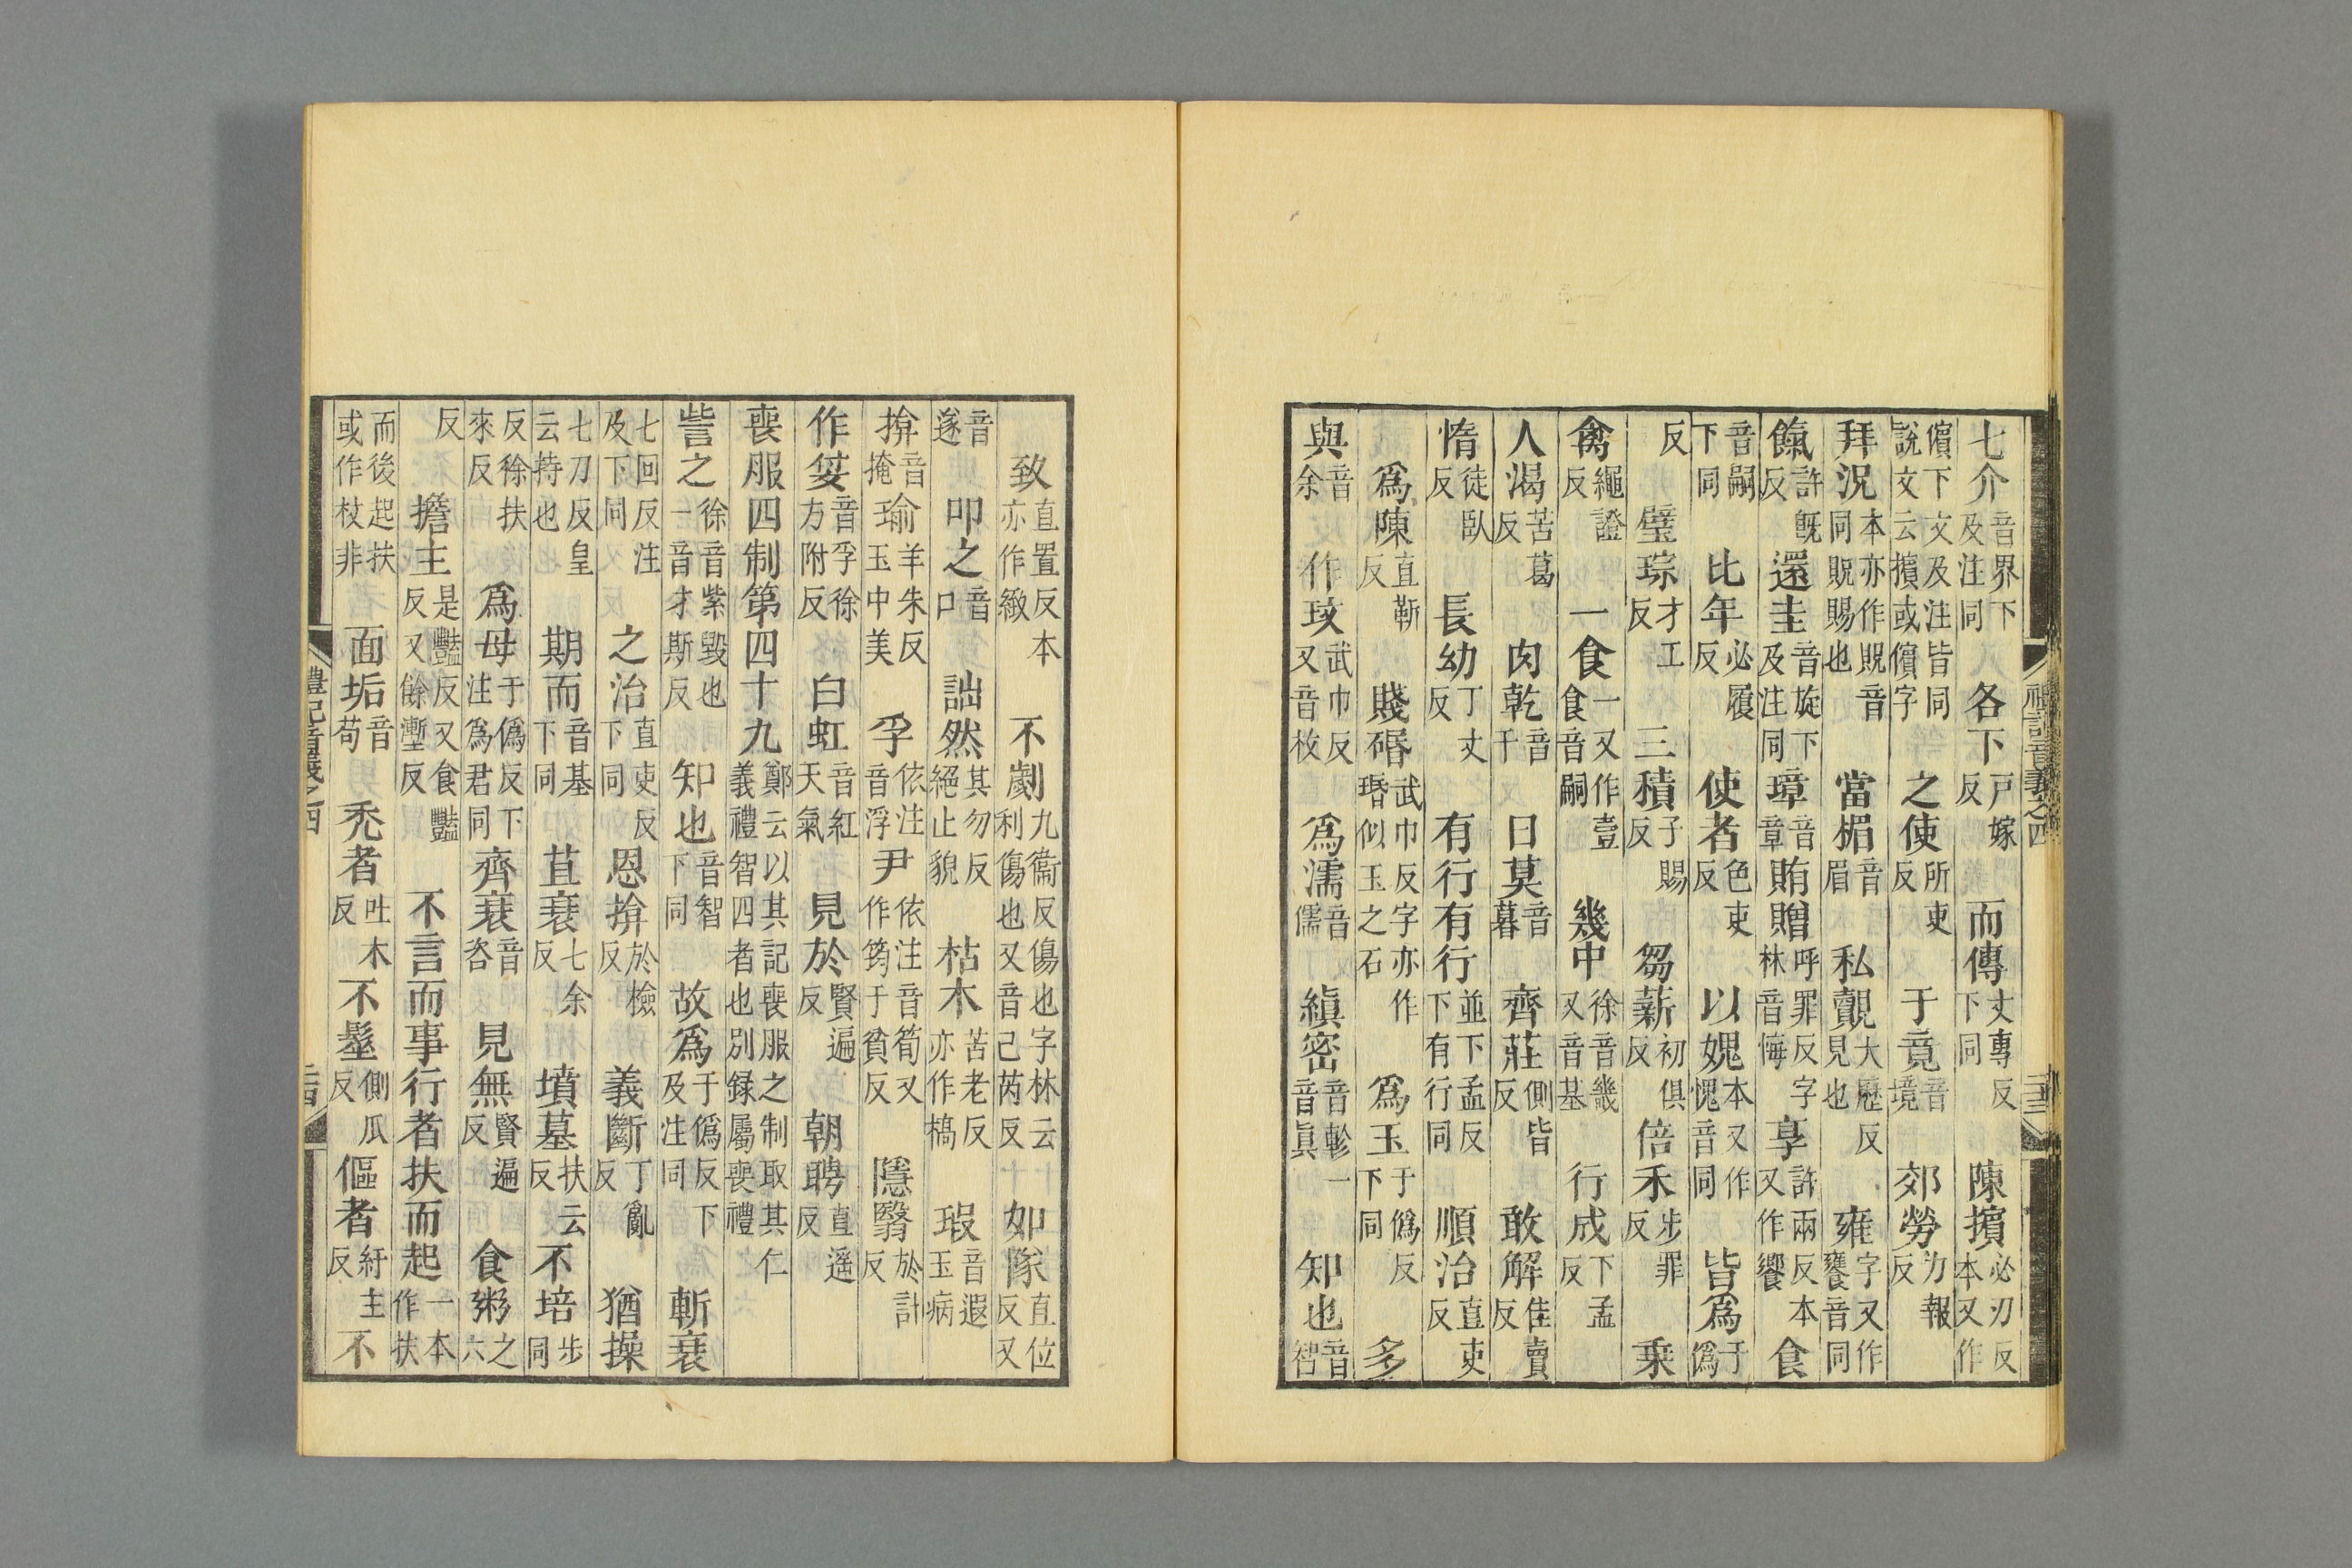 禮記音義之四
二十三
七介音界下及注同各下戸嫁反而傳丈專反下同陳擯必刃反本又作
儐下文及注皆同說文云擯或儐字之使所吏反于竟音境郊勞力報反
拜況本亦作貺音同貺賜也當楣音眉私覿大歷反見也雍字又作饔音同
餼許旣反還圭音旋下及注同璋音章賄贈呼罪反字林音悔享許兩反本又作饗食
音嗣下同比年必履反使者色吏反以媿本又作愧音同皆爲于僞
反璧琮才工反三積子賜反芻薪初俱反倍禾步罪反乗
禽繩證反一食一又作壹食音嗣幾中徐音幾又音基行成下孟反
人渴苦葛反肉乾音干日莫音暮齊莊側皆反敢解佳賣反
惰徒臥反長幼丁丈反有行有行並下孟反下有行同順治直吏反
爲陳直靳反賤碈武巾反字亦作瑉似玉之石爲玉于僞反下同多
與音余作玟武巾反又音枚爲濡音儒縝密音軫一音眞知也音智
致直置反本亦作緻不劌九衞反傷也字林云利傷也又音己芮反如隊直位反又
音遂叩之音口詘然其勿反絕止貌枯木苦老反亦作槁瑕音遐玉病
揜音掩瑜羊朱反玉中美孚依注音浮尹依注音筍又作筠于貧反隱翳於計反
作姇音孚徐方附反白虹音紅天氣見於賢遍反朝聘直遥反
喪服四制第四十九鄭云以其記喪服之制取其仁義禮智四者也別録屬喪禮
訾之徐音紫毀也一音才斯反知也音智下同故爲于僞反下及注同斬衰
七回反注及下同之治直吏反下同恩揜於檢反義斷丁亂反猶操
七刀反皇云持也期而音基下同苴衰七余反墳墓扶云反不培步同
反徐扶來反爲母于僞反下注爲君同齊衰音咨見無賢遍反食粥之六
反擔主是豔反又食豔反又餘塹反不言而事行者扶而起一本作扶
而後起扶或作杖非面垢音苟禿者吐木反不髽側瓜反傴者紆主反不
禮記音義之四
二十四